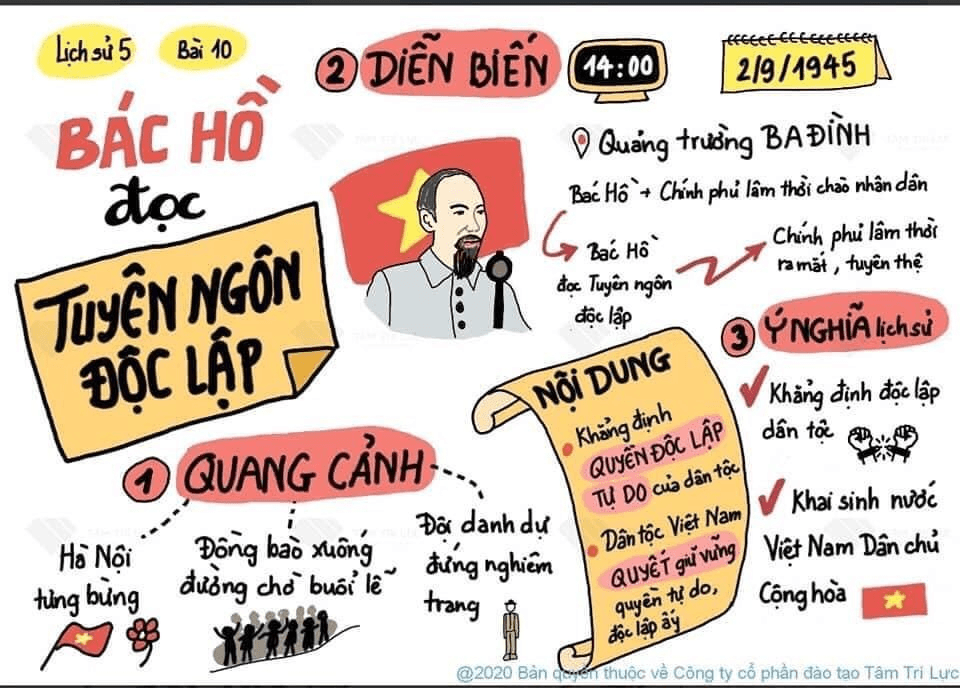 Lịch sử 5
Bài 10
BÁC HỒ
đọc
TUYÊN NGÔN
ĐỘC LẬP
1 QUANG CẢNH
Hà Nội
tưng bừng
Đồng bào xuống
đường chờ buổi lễ
Đội danh dự
đứng nghiêm
trang
2 DIỄN BIẾN
14:00
2/9/1945
Quảng trường BA ĐÌNH
Bác Hồ + Chính phủ lâm thời chào nhân dân
Bác Hồ
đọc Tuyên ngôn
độc lập
Chính phủ lâm thời
ra mắt, tuyên thệ
NỘI DUNG
Khẳng định
QUYỀN ĐỘC LẬP
TỰ DO của dân tộc
Dân tộc Việt Nam
QUYẾT giữ vững
quyền tự do,
độc lập ấy
3 Ý NGHĨA lịch sử
Khẳng định độc lập
dân tộc
Khai sinh nước
Việt Nam Dân chủ
Cộng hòa
@2020 Bản quyền thuộc về Công ty cổ phần đào tạo Tâm Trí Lực